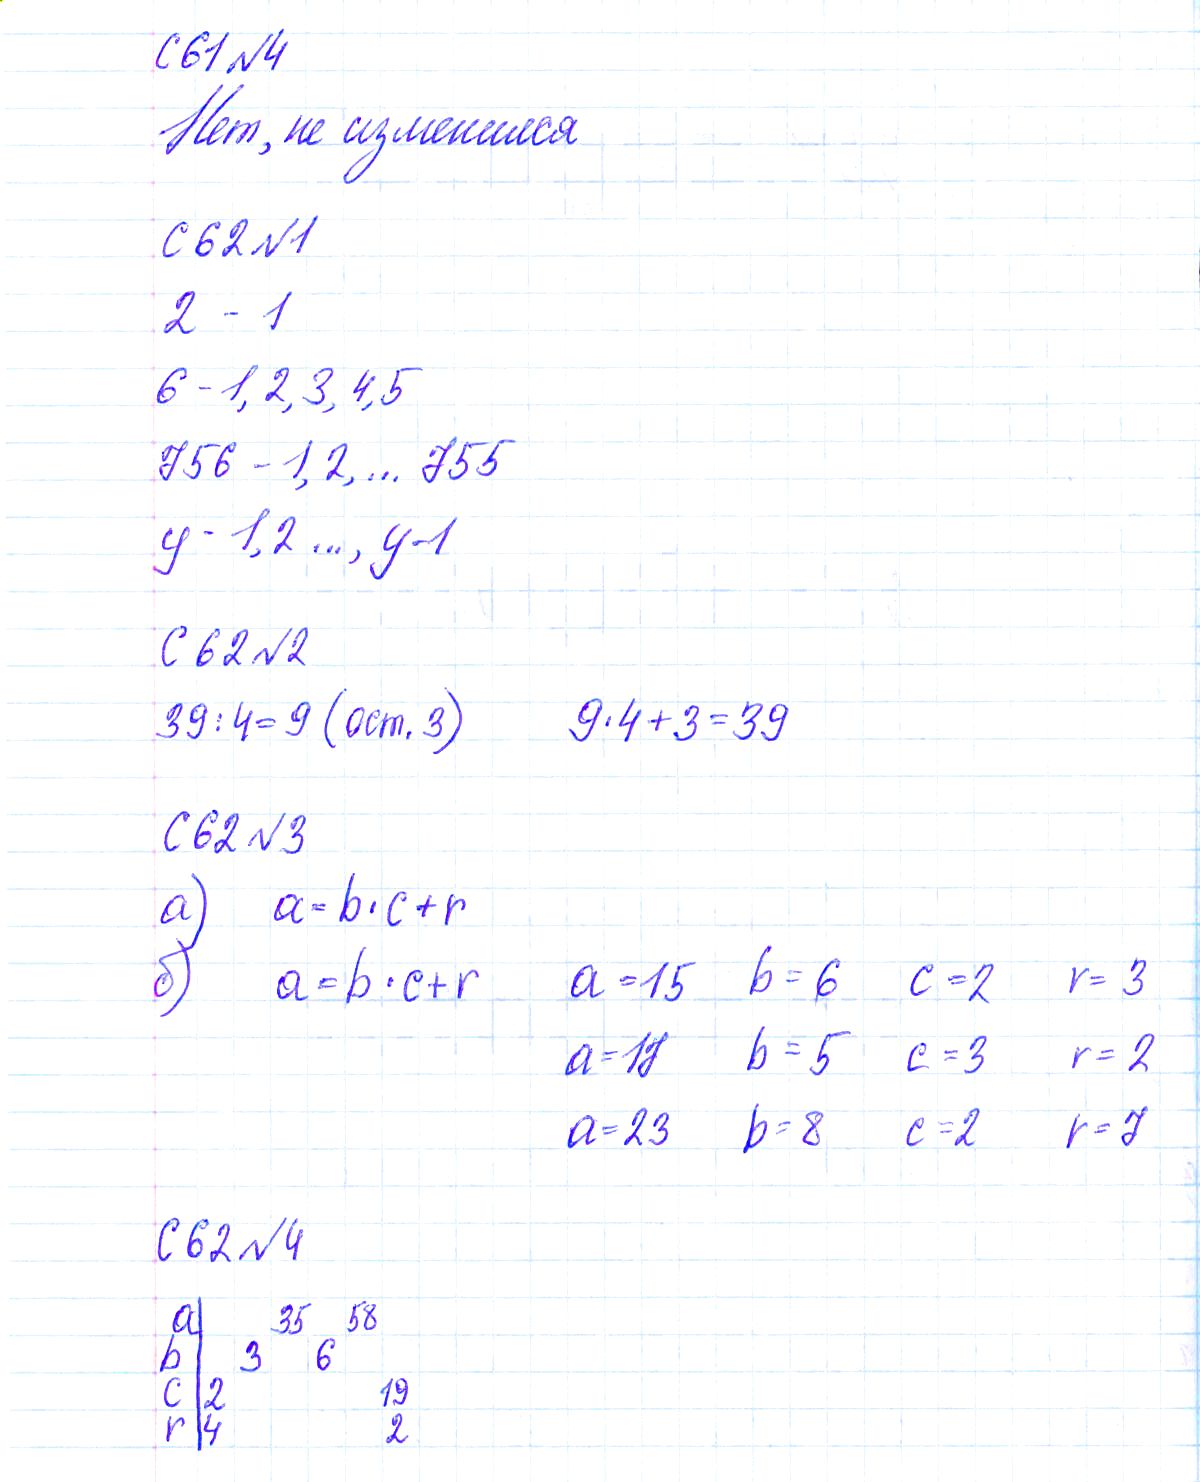 С 61 №4
Нет, не изменился
С 62 №1
2 - 1
6 - 1, 2, 3, 4, 5
756 - 1, 2, ... 755
y - 1, 2 ..., y-1
С 62 №2
39:4=9 (ост. 3) 9·4+3=39
С 62 №3
а) a=b·c+r
б) a=b·c+r a=15 b=6 c=2 r=3
a=17 b=5 c=3 r=2
a=23 b=8 c=2 r=7
С 62 №4
a 35 58
b 3 6
c 2 19
r 4 2